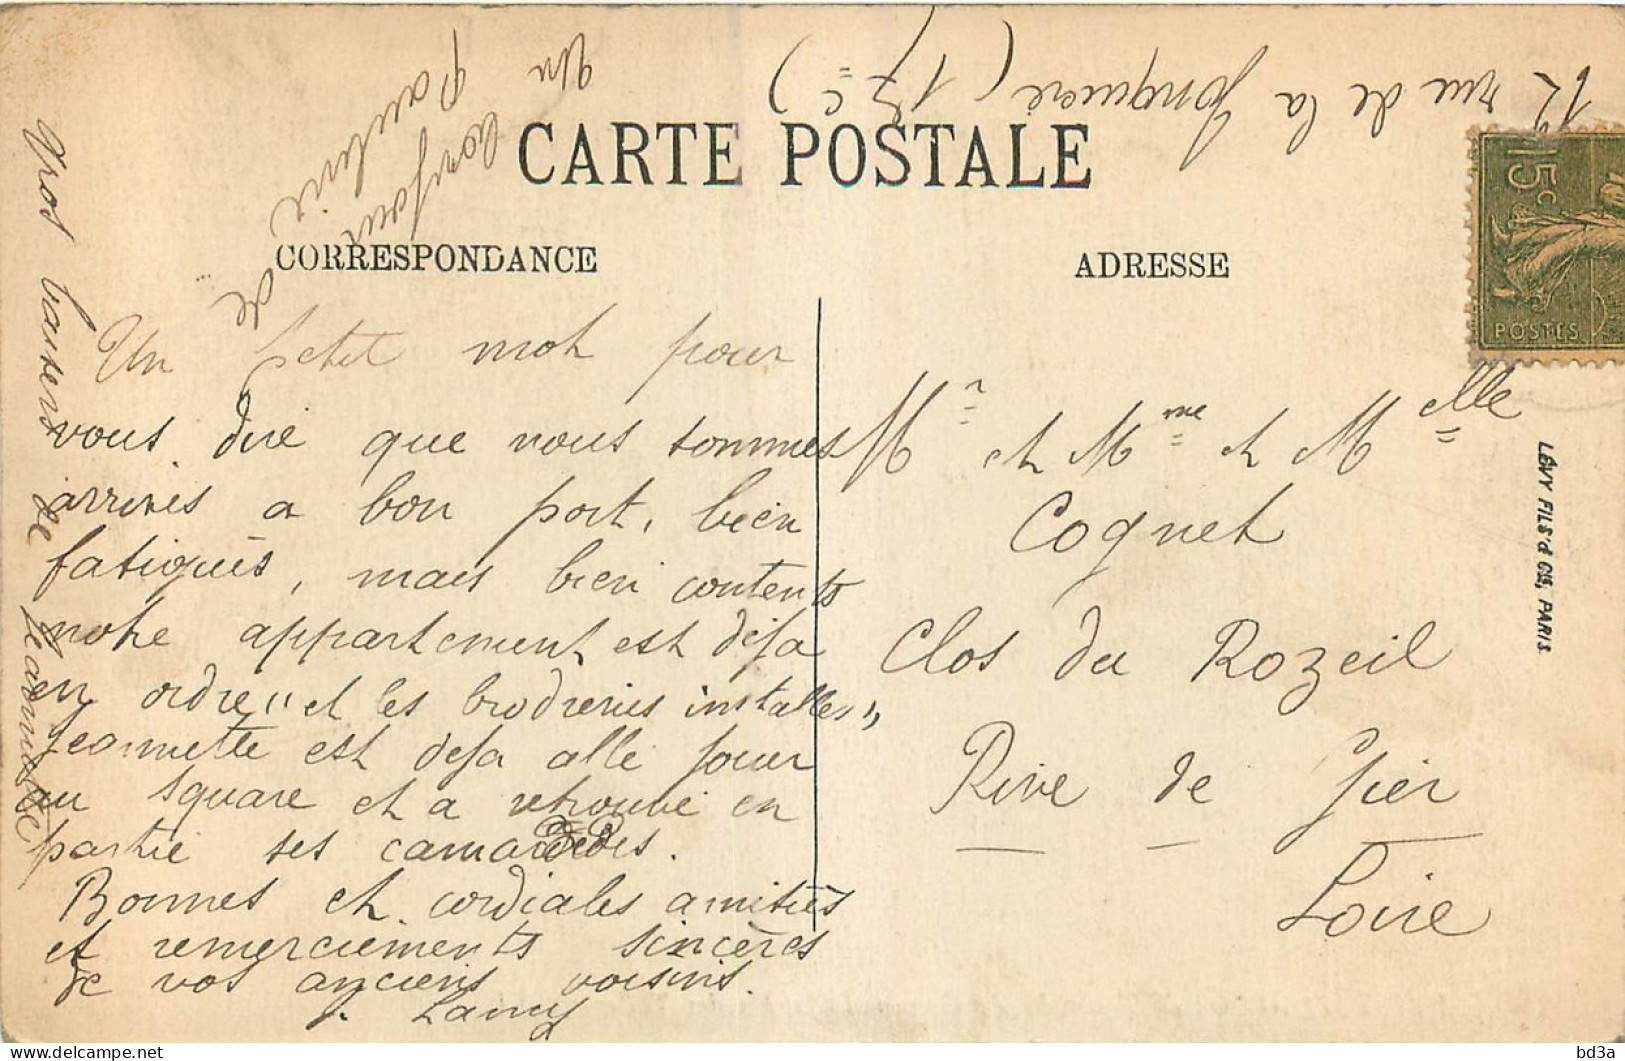 12 rue de la Jonquiere (17e)
Un bonjour de
Pauline
CARTE POSTALE
CORRESPONDANCE
ADRESSE
15c
POSTES
Un petit mot pour
vous dire que nous sommes
arrivés a bon port, bien
fatigués, mais bien contents
notre appartement est deja
en ordre "et les brodreries installes"
Jeannette est deja allé jouer
au square et a retrouvé en
partie ses camarades.
Bonnes et cordiales amitiés
et remerciements sincères
de vos anciens voisins.
J. Lamy
Gros baisers de Jeannette
Mr et Mme et Melle
Coquet
Clos du Rozeil
Rive de Gier
Loire
LÉVY FILS & Cie, PARIS
bd3a